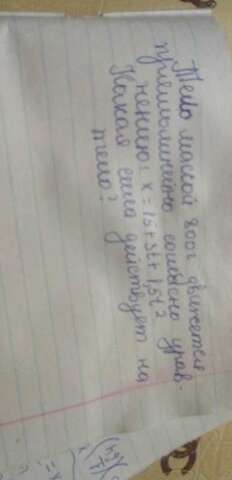 Тело массой 800г движется
прямолинейно согласно урав-
нению: x = 15 + 3t + 1,5t²
Какая сила действует на
тело?